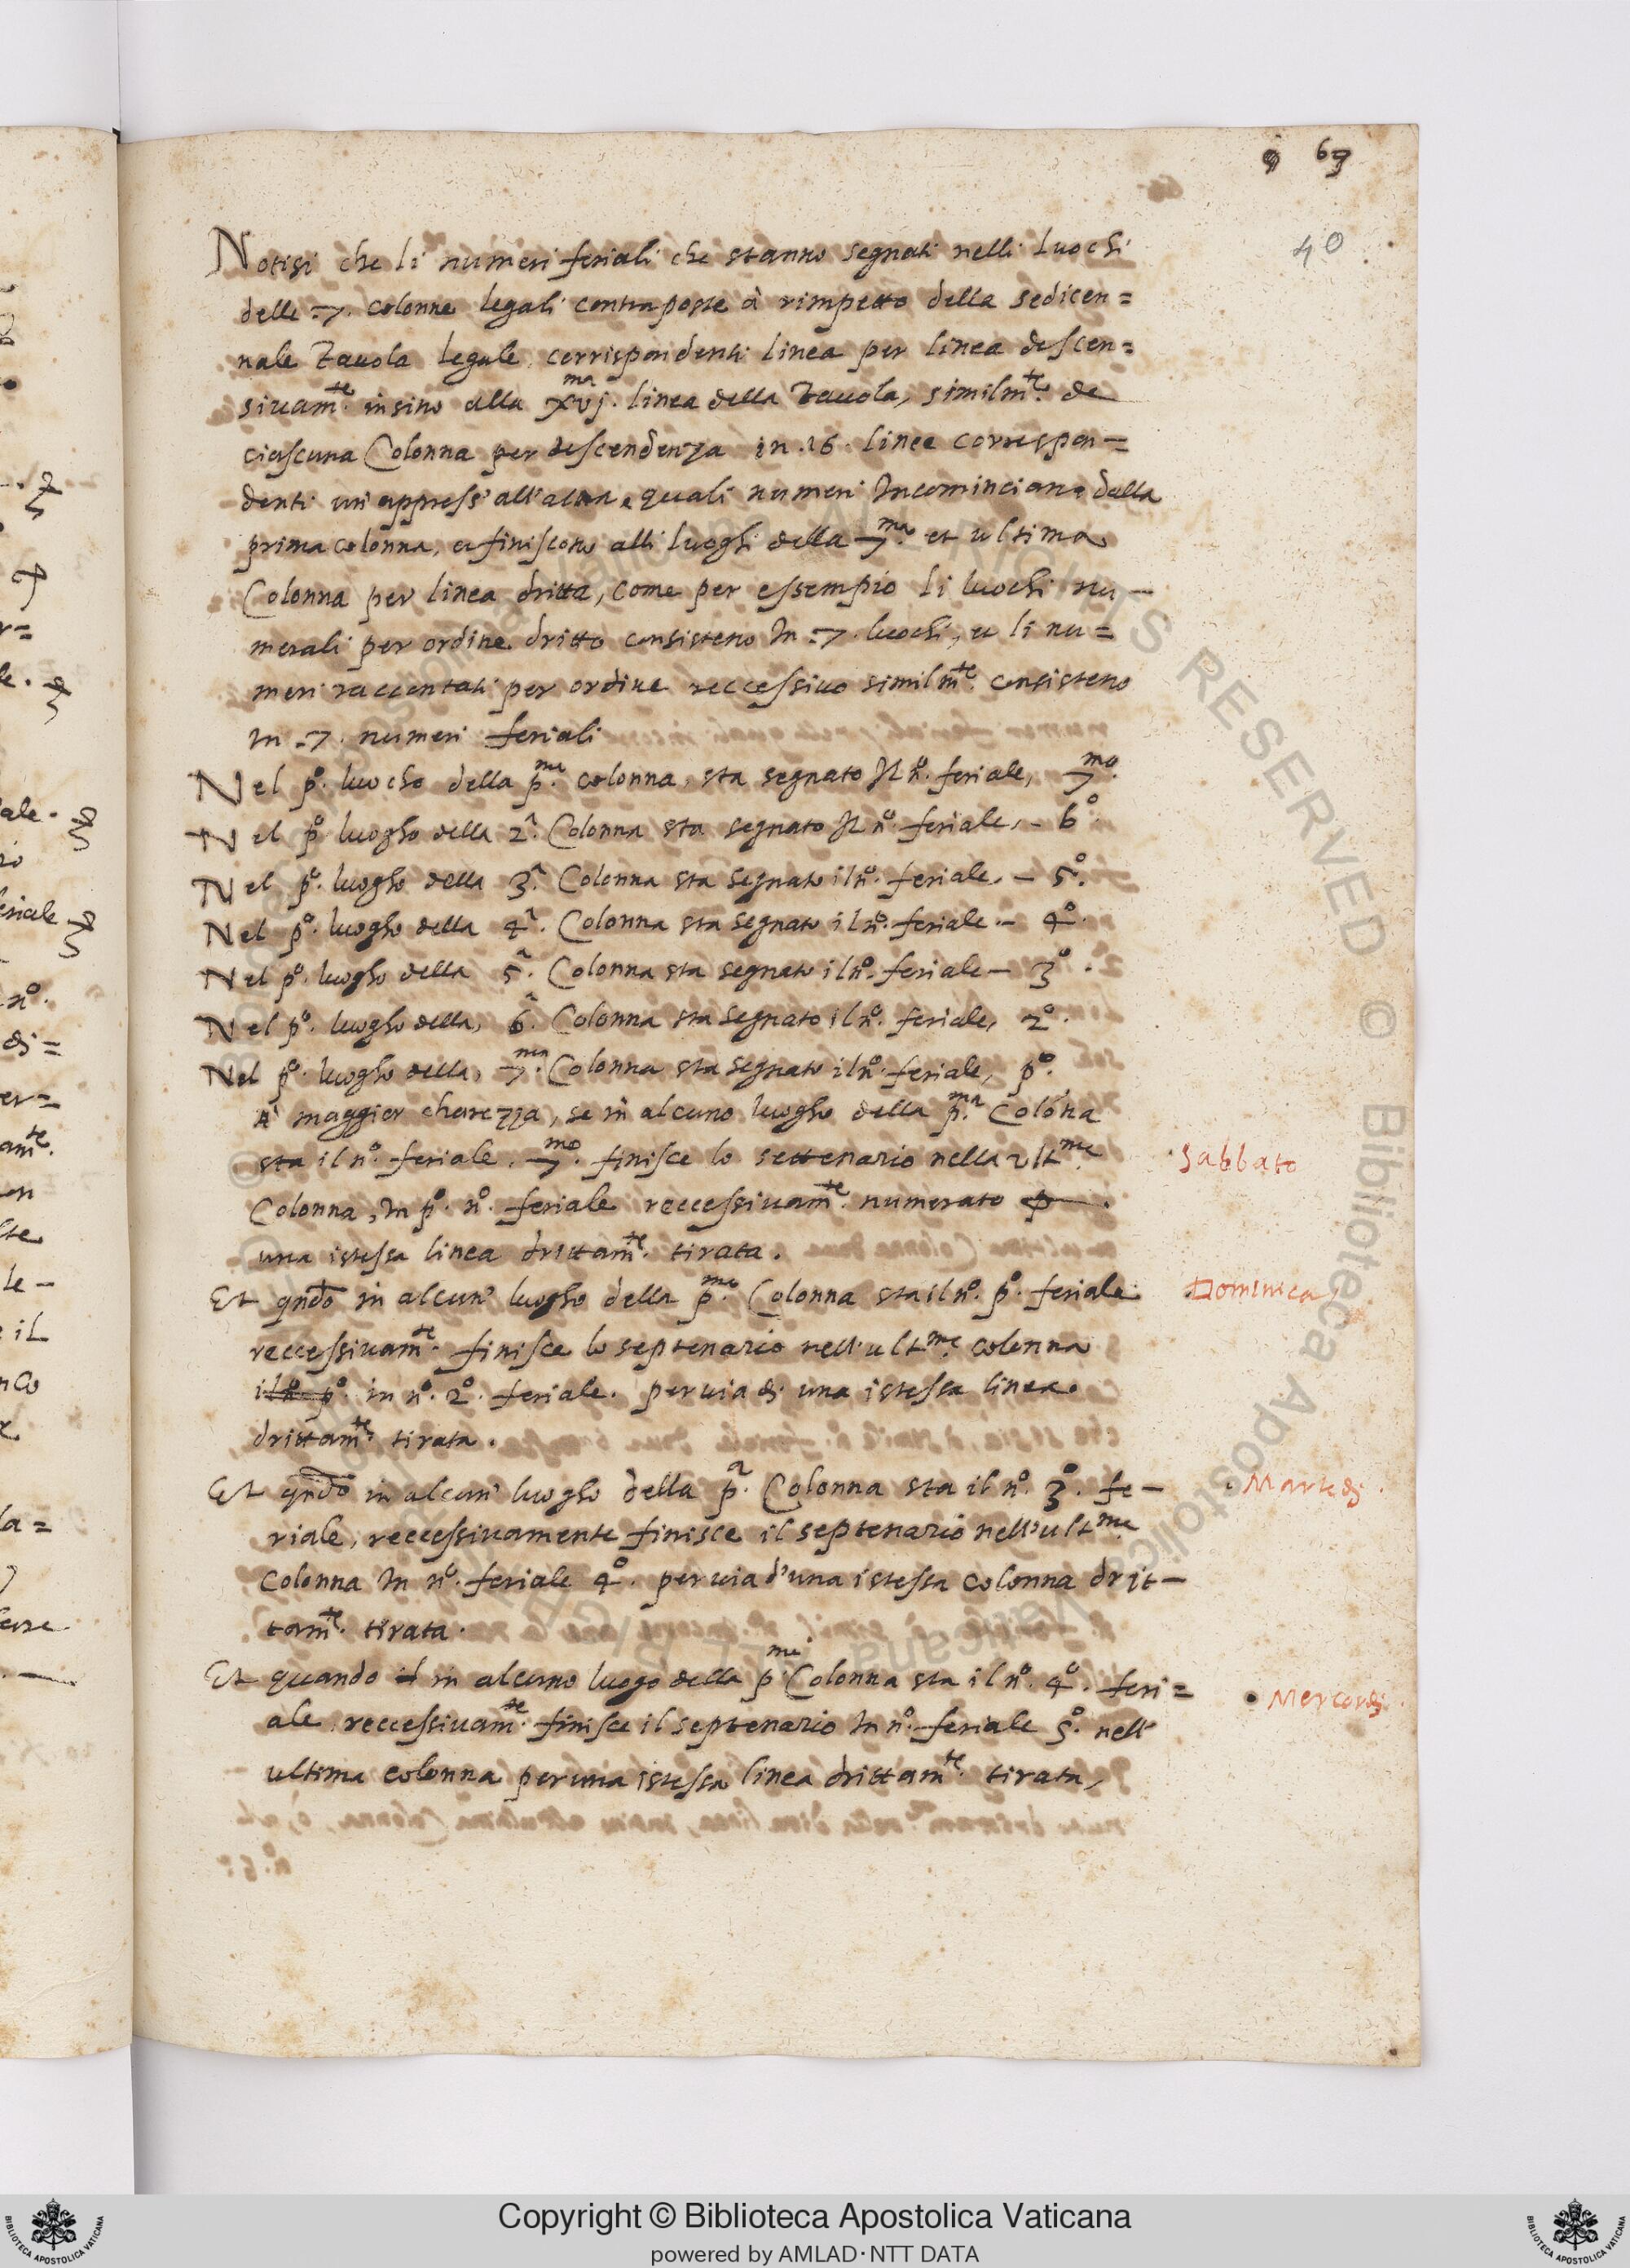 69
40
Notisi che li numeri feriali che stanno segnati nelli luochi
delle .7. colonne legali contraposte à rimpetto della sedicen=
nale Tauola legale, corrispondenti linea per linea descen=
siuam.te insino alla xvj.ma linea della Tauola, similm.te de
ciascuna Colonna per descendenza in .16. linee correspon-
denti un' appress' all' altra, quali numeri Incominciano dalla
prima colonna, et finiscono alli luoghi della 7.ma et ultima
Colonna per linea dritta, come per essempio li luochi nu-
merali per ordine dritto consisteno In .7. luochi, et li nu=
meri raccontati per ordine reccessiuo similm.te consisteno
In .7. numeri feriali
Nel p.o luocho della p.ma colonna, sta segnato Il n.o feriale, 7.mo
Nel p.o luogho della 2.a Colonna sta segnato Il n.o feriale, - 6.o
Nel p.o luogho della 3.a Colonna sta segnato il n.o feriale. - 5.o
Nel p.o luogho della 4.a Colonna sta segnato il n.o feriale - 4.o
Nel p.o luogho della 5.a Colonna sta segnato il n.o feriale - 3.o
Nel p.o luogho della, 6.a Colonna sta segnato il n.o feriale, 2.o
Nel p.o luogho della, 7.ma Colonna sta segnato il n.o feriale, p.o
A maggior charezza, se in alcuno luogho della p.ma Colōna
sta il n.o feriale .7.mo finisce lo settenario nella ult.ma
Sabbato
Colonna, In p.o n.o feriale reccessiuam.te numerato
una istessa linea drittam.te tirata.
Et qndo in alcun' luogho della p.ma Colonna sta il n.o p.o feriale
Dominica
reccessiuam.te finisce lo septenario nell' ult.ma colonna
il n.o p.o in n.o 2.o feriale. per uia di una istessa linea
drittam.te tirata.
Et qndo in alcun' luogho della p.a Colonna sta il n.o 3.o fe-
Martedi
riale, reccessiuamente finisce il septenario nell' ult.ma
Colonna In n.o feriale 4.o per uia d'una istessa colonna drit-
tam.te tirata.
Et quando il in alcuno luogo della p.ma Colonna sta il n.o 4.o feri=
Mercordi
ale reccessiuam.te finisce il septenario In n.o feriale 5.o nell'
ultima colonna per una istessa linea drittam.te tirata,
© Biblioteca Apostolica Vaticana
ALL RIGHTS RESERVED
Copyright © Biblioteca Apostolica Vaticana
powered by AMLAD·NTT DATA
BIBLIOTECA APOSTOLICA VATICANA
BIBLIOTECA APOSTOLICA VATICANA